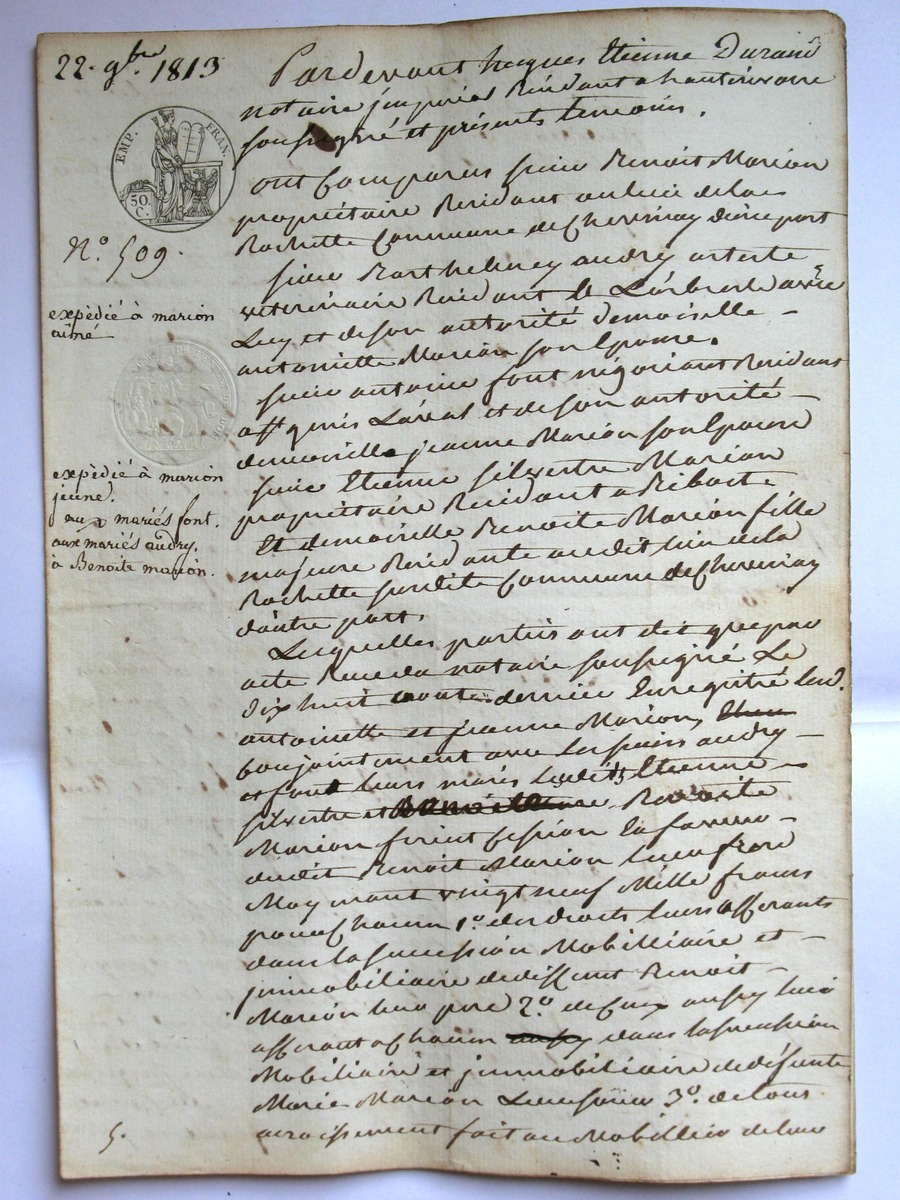 22. 9bre. 1813
EMP. FRAN.
50. C.
N.o 509.
expèdié à marion
aîné
expèdié à marion
jeune.
aux mariés font.
aux mariés audry.
à Benoite marion.
Pardevant Jacques Etienne Durand
notaire jmperial Residant a hauterivoire
soussigné et présents temoins.
ont Comparus sieur Benoit Marion
propriétaire Residant au lieu de la
Rochette Commune de Chevrinay d'une part
sieur Barthelemey audry artiste
veterinaire Residant Larbresle avec
Luy et de son autorité demoiselle -
antoinette Marion son Epouse.
sieur antoine font négociant Residant
a st genis Laval et de son autorité -
demoiselle jeanne Marion son Epouse
sieur Etienne silvestre Marion
propriétaire Residant a Riboste
Et demoiselle Benoite Marion fille
majeure Residante audit lieu de la
Rochette susdite Commune de Chevrinay
d'autre part.
Lesquelles parties ont dit que par
acte Recu du notaire soussigné Le
Dix huit aout dernier Enregistré Lesd.
antoinette et jeanne Marion,
Conjointement avec Les sieurs audry -
et font leurs maris Lesdits Etienne -
silvestre et Benoite
Marion firent Cession En faveur -
dudit Benoit Marion Leur frere
Moy[en]nant vingt neuf Mille francs
pour Chacun 1.o des droits leurs afferants
dans la succession Mobilliaire et -
jmmobiliaire de deffunt Benoit -
Marion leur pere 2.o de Ceux aussy leur
afferant a Chacun dans la succession
Mobiliaire et jmmobiliaire de défunte
Marie Marion Leur soeur 3.o de tous
acroissement fait au Mobillier de leur
5.